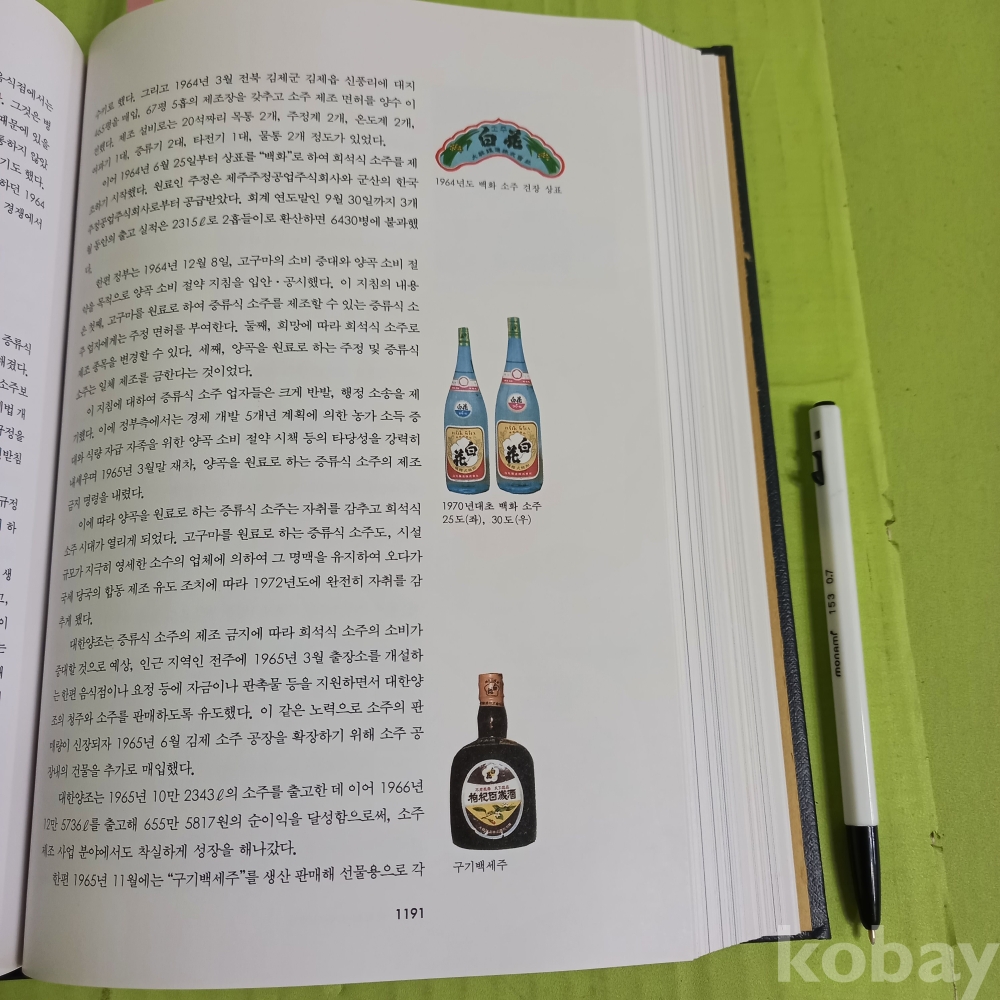 음식점에서는
그것은 병
때문에 있을
통하지 않았
기도 했다.
하던 1964
경쟁에서
증류식
해졌다.
소주보
법 개
규정을
규정
하
생
고,
이
는
해
있
수하로 했다. 그리고 1964년 3월 전북 김제군 김제읍 신풍리에 대지
465평을 매입, 67평 5홉의 제조장을 갖추고 소주 제조 면허를 양수 이
전했다. 제조 설비로는 20석짜리 목통 2개, 주정계 2개, 온도계 2개,
여과기 1대, 증류기 2대, 타전기 1대, 물통 2개 정도가 있었다.
이어 1964년 6월 25일부터 상표를 “백화”로 하여 희석식 소주를 제
조하기 시작했다. 원료인 주정은 제주주정공업주식회사와 군산의 한국
주정공업주식회사로부터 공급받았다. 회계 연도말인 9월 30일까지 3개
월 동안의 출고 실적은 2315ℓ로 2홉들이로 환산하면 6430병에 불과했
다.
한편 정부는 1964년 12월 8일, 고구마의 소비 증대와 양곡 소비 절
약을 목적으로 양곡 소비 절약 지침을 입안·공시했다. 이 지침의 내용
은 첫째, 고구마를 원료로 하여 증류식 소주를 제조할 수 있는 증류식 소
주 업자에게는 주정 면허를 부여한다. 둘째, 희망에 따라 희석식 소주로
제조 종목을 변경할 수 있다. 세째, 양곡을 원료로 하는 주정 및 증류식
소주는 일체 제조를 금한다는 것이었다.
이 지침에 대하여 증류식 소주 업자들은 크게 반발, 행정 소송을 제
기했다. 이에 정부측에서는 경제 개발 5개년 계획에 의한 농가 소득 증
대와 식량 자급 자족을 위한 양곡 소비 절약 시책 등의 타당성을 강력히
내세우며 1965년 3월말 재차, 양곡을 원료로 하는 증류식 소주의 제조
금지 명령을 내렸다.
이에 따라 양곡을 원료로 하는 증류식 소주는 자취를 감추고 희석식
소주 시대가 열리게 되었다. 고구마를 원료로 하는 증류식 소주도, 시설
규모가 지극히 영세한 소수의 업체에 의하여 그 명맥을 유지하여 오다가
국세 당국의 합동 제조 유도 조치에 따라 1972년도에 완전히 자취를 감
추게 됐다.
대한양조는 증류식 소주의 제조 금지에 따라 희석식 소주의 소비가
증대할 것으로 예상, 인근 지역인 전주에 1965년 3월 출장소를 개설하
는 한편 음식점이나 요정 등에 자금이나 판촉물 등을 지원하면서 대한양
조의 청주와 소주를 판매하도록 유도했다. 이 같은 노력으로 소주의 판
매량이 신장되자 1965년 6월 김제 소주 공장을 확장하기 위해 소주 공
장내의 건물을 추가로 매입했다.
대한양조는 1965년 10만 2343ℓ의 소주를 출고한 데 이어 1966년
12만 5736ℓ를 출고해 655만 5817원의 순이익을 달성함으로써, 소주
제조 사업 분야에서도 착실하게 성장을 해나갔다.
한편 1965년 11월에는 “구기백세주”를 생산 판매해 선물용으로 각
1191
소주
白花
1964년도 백화 소주 견장 상표
白花
白花
白花
白花
1970년대초 백화 소주
25도(좌), 30도(우)
白花
枸杞百歲酒
구기백세주
monami 153 0.7
kobay